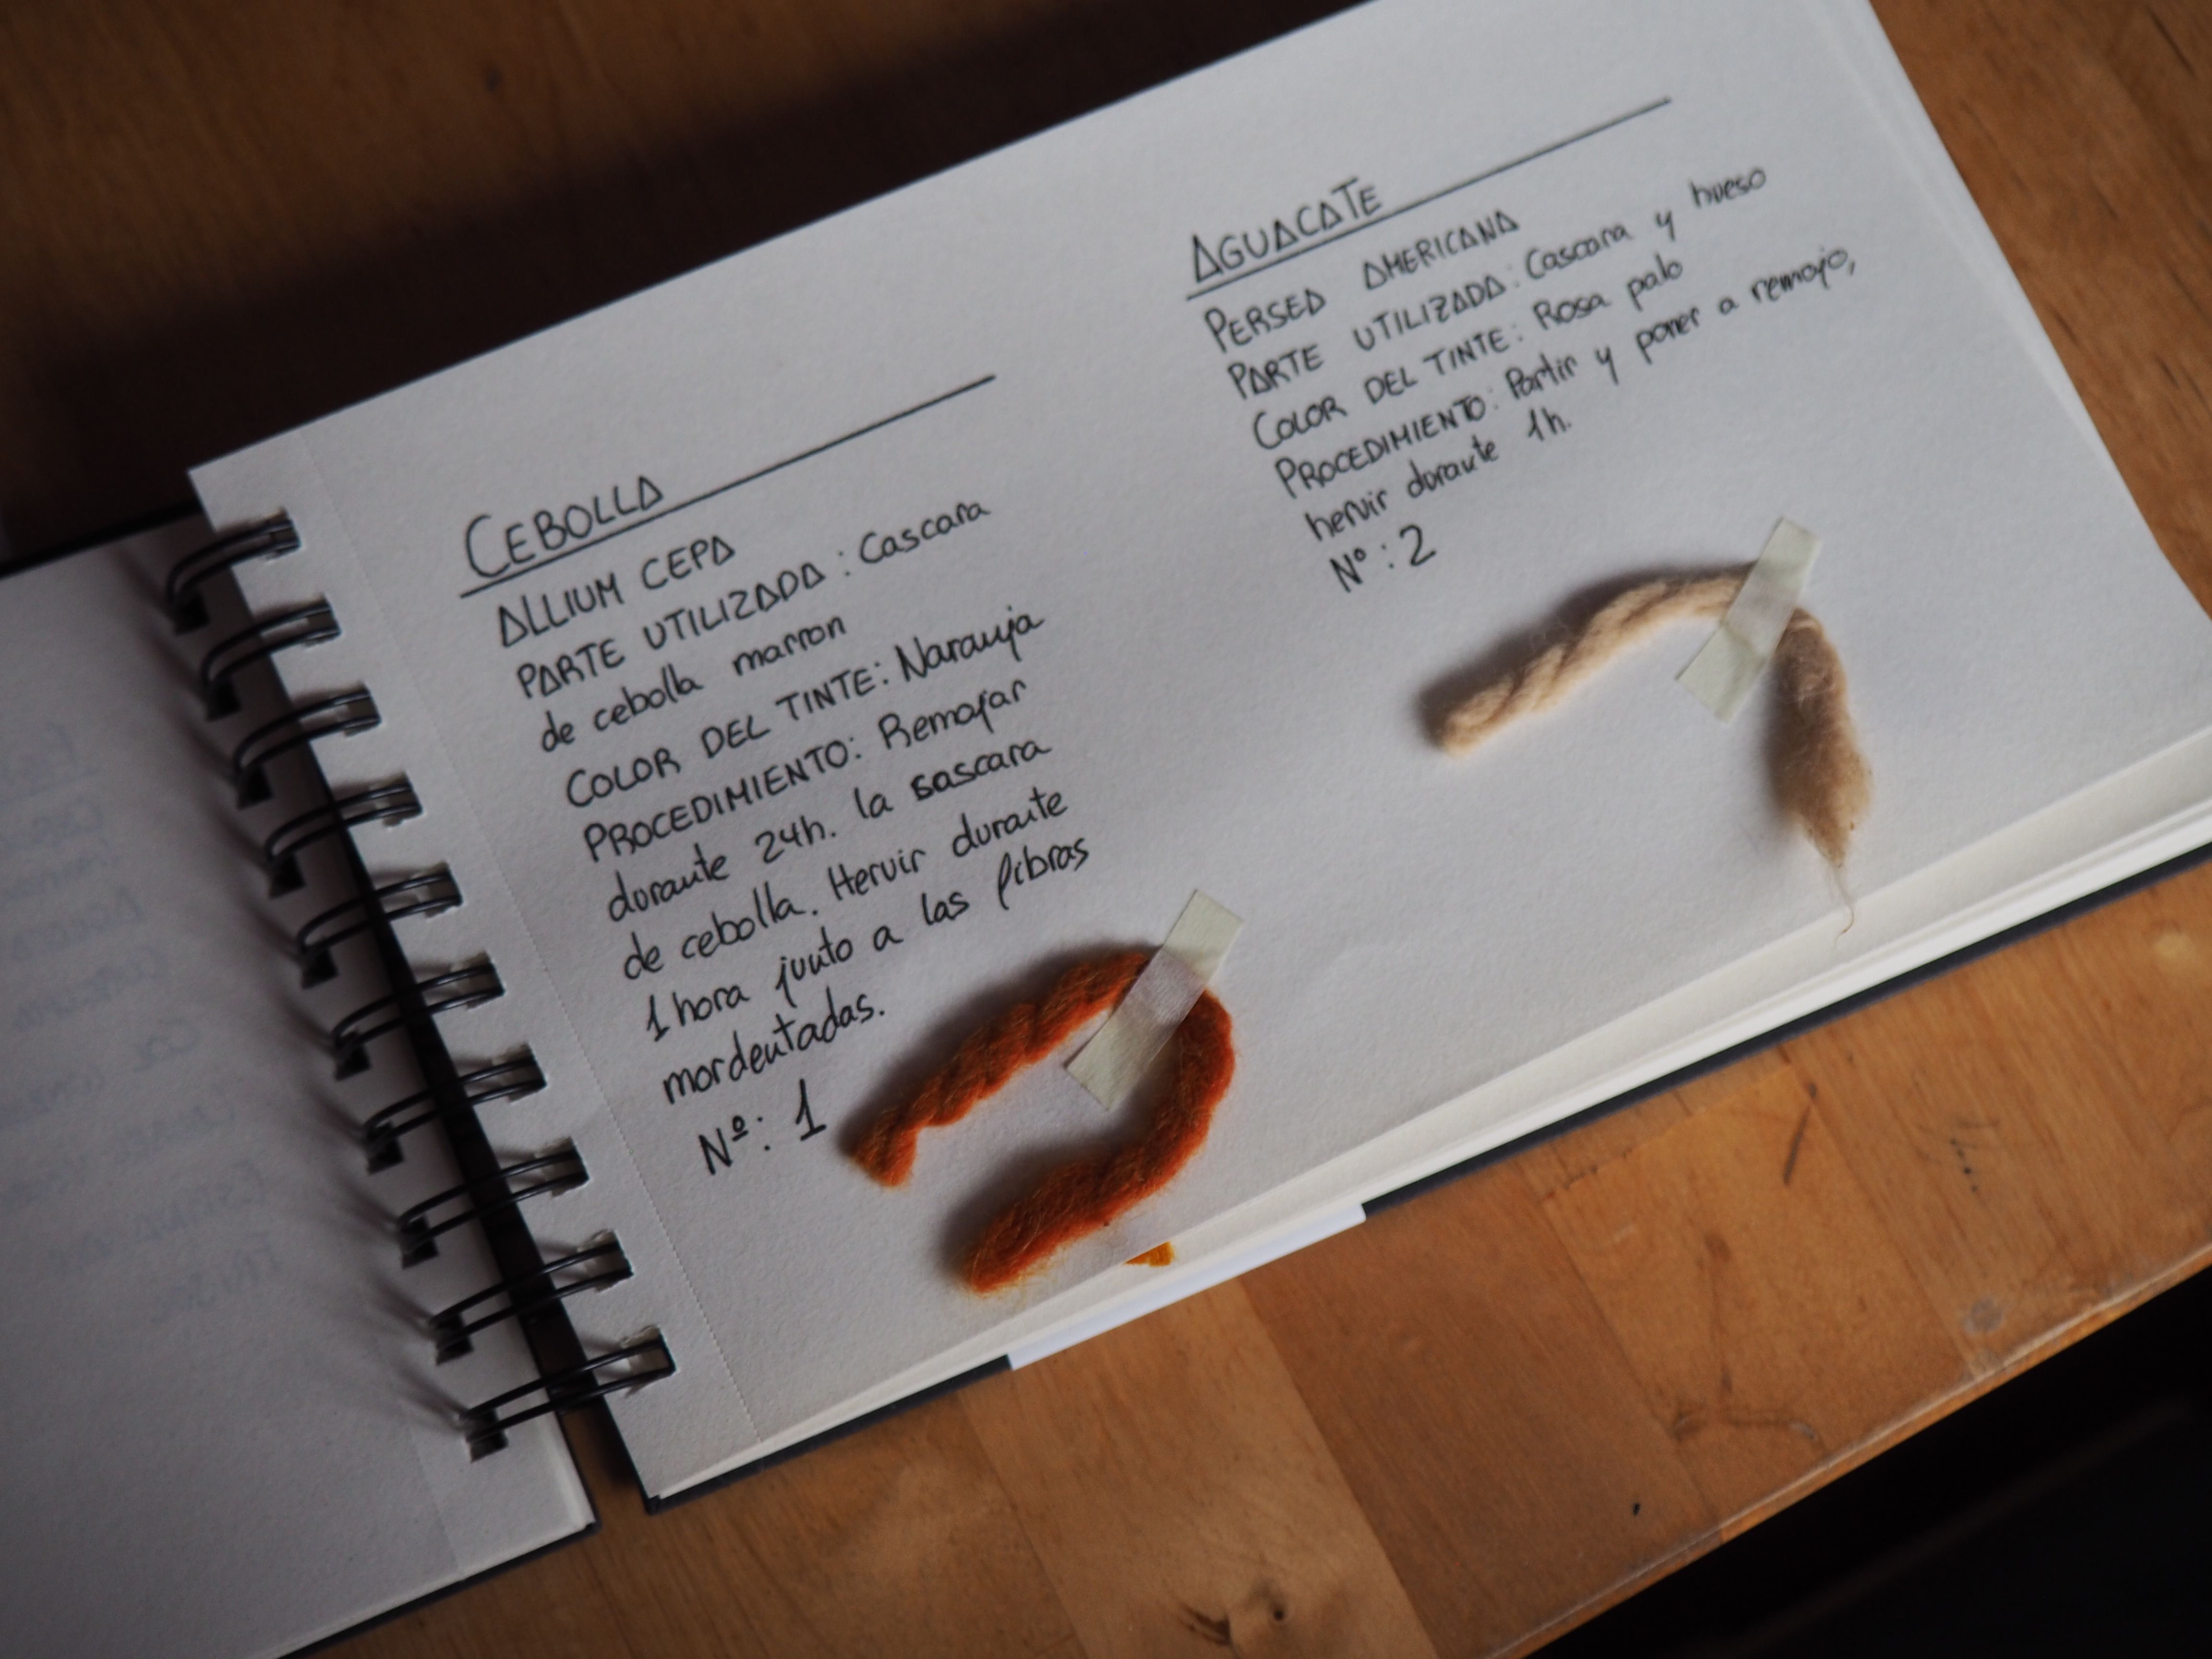 CEBOLLA
ALLIUM CEPA
PARTE UTILIZADA: Cascara
de cebolla marron
COLOR DEL TINTE: Naranja
PROCEDIMIENTO: Remojar
durante 24h. la sascara
de cebolla. Hervir durante
1 hora junto a las fibras
mordentadas.
Nº: 1
AGUACATE
PERSEA AMERICANA
PARTE UTILIZADA: Cascara y hueso
COLOR DEL TINTE: Rosa palo
PROCEDIMIENTO: Partir y poner a remojo,
hervir durante 1h.
Nº: 2